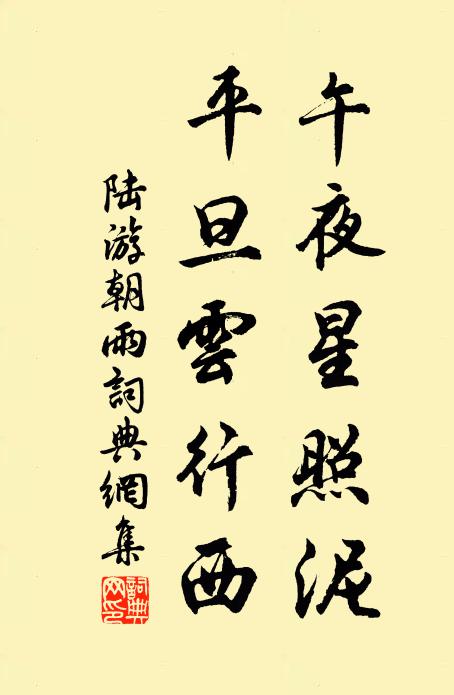 午夜星照泥
平旦雲行西
陆游朝雨詞典網集
詞典網印